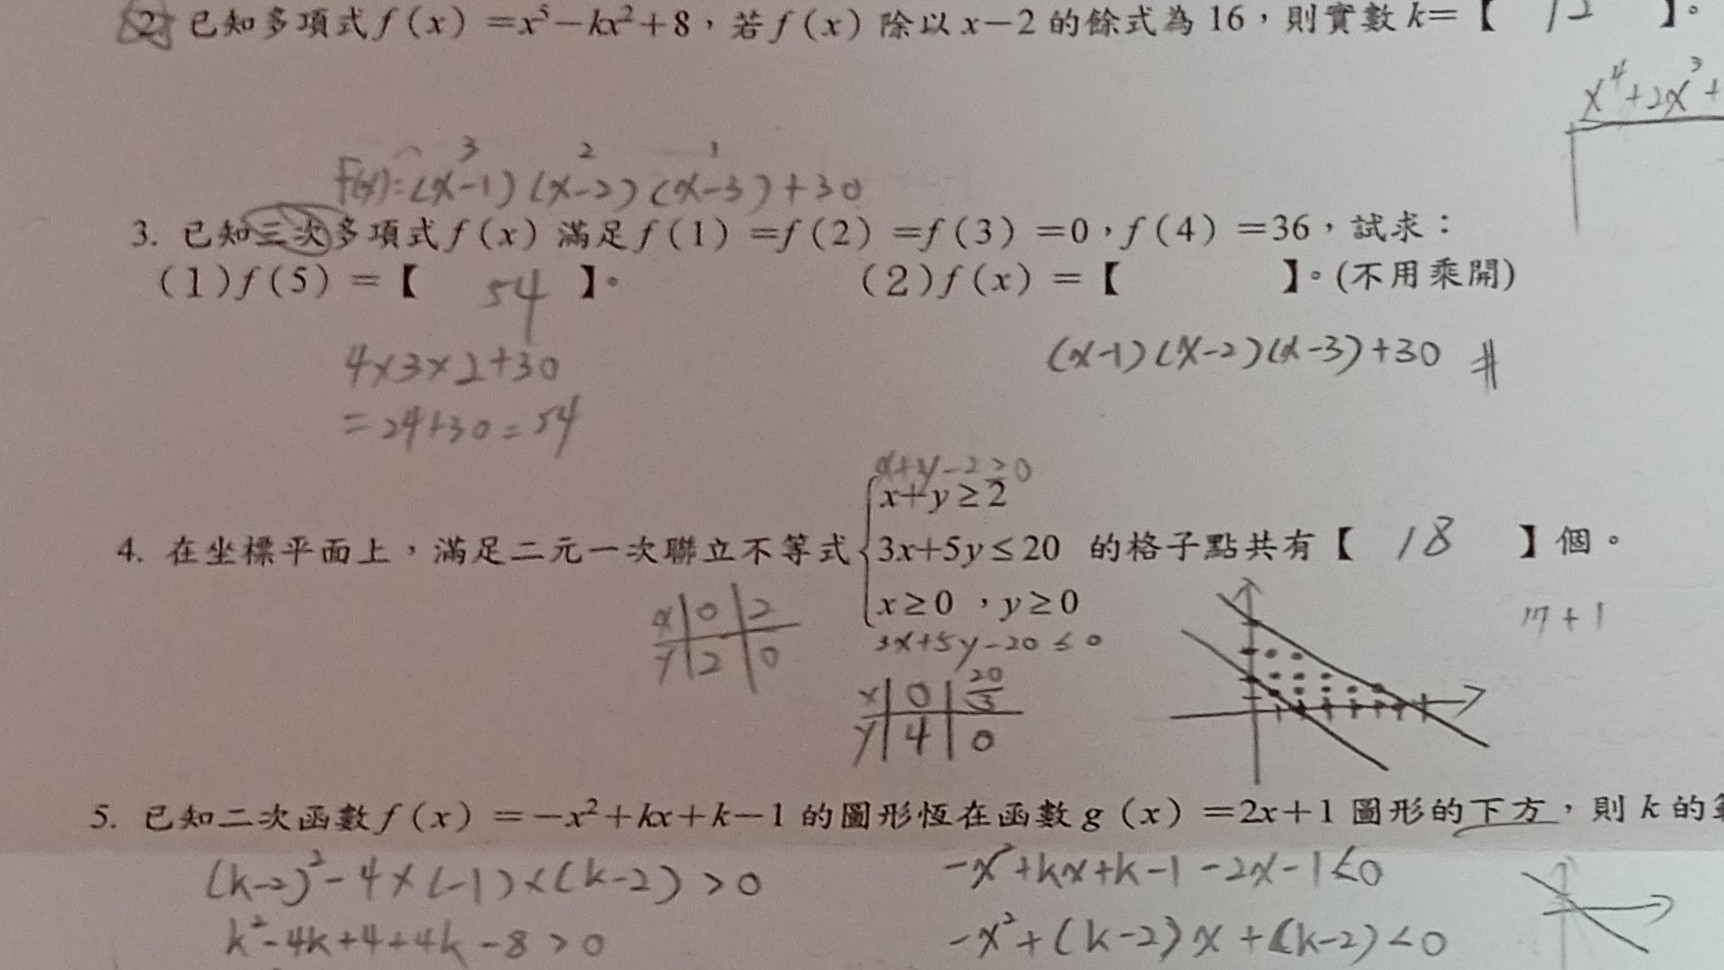 2. 已知多項式 f(x)=x⁵-kx²+8,若 f(x) 除以 x-2 的餘式為 16,則實數 k=【 12 】。
x⁴+2x³+
3 2 1
F(x)=(x-1)(x-2)(x-3)+30
3. 已知三次多項式 f(x) 滿足 f(1)=f(2)=f(3)=0,f(4)=36,試求:
(1)f(5)=【 54 】。 (2)f(x)=【 】。(不用乘開)
4×3×2+30
=24+30=54
(x-1)(x-2)(x-3)+30 #
x+y-2≥0
x+y≥2
4. 在坐標平面上,滿足二元一次聯立不等式 3x+5y≤20 的格子點共有【 18 】個。
x≥0,y≥0
17+1
3x+5y-20≤0
x 0 2
y 2 0
x 0 20/3
y 4 0
5. 已知二次函數 f(x)=-x²+kx+k-1 的圖形恆在函數 g(x)=2x+1 圖形的下方,則 k 的
(k-2)²-4×(-1)×(k-2)>0
-x²+kx+k-1-2x-1<0
k²-4k+4+4k-8>0
-x²+(k-2)x+(k-2)<0